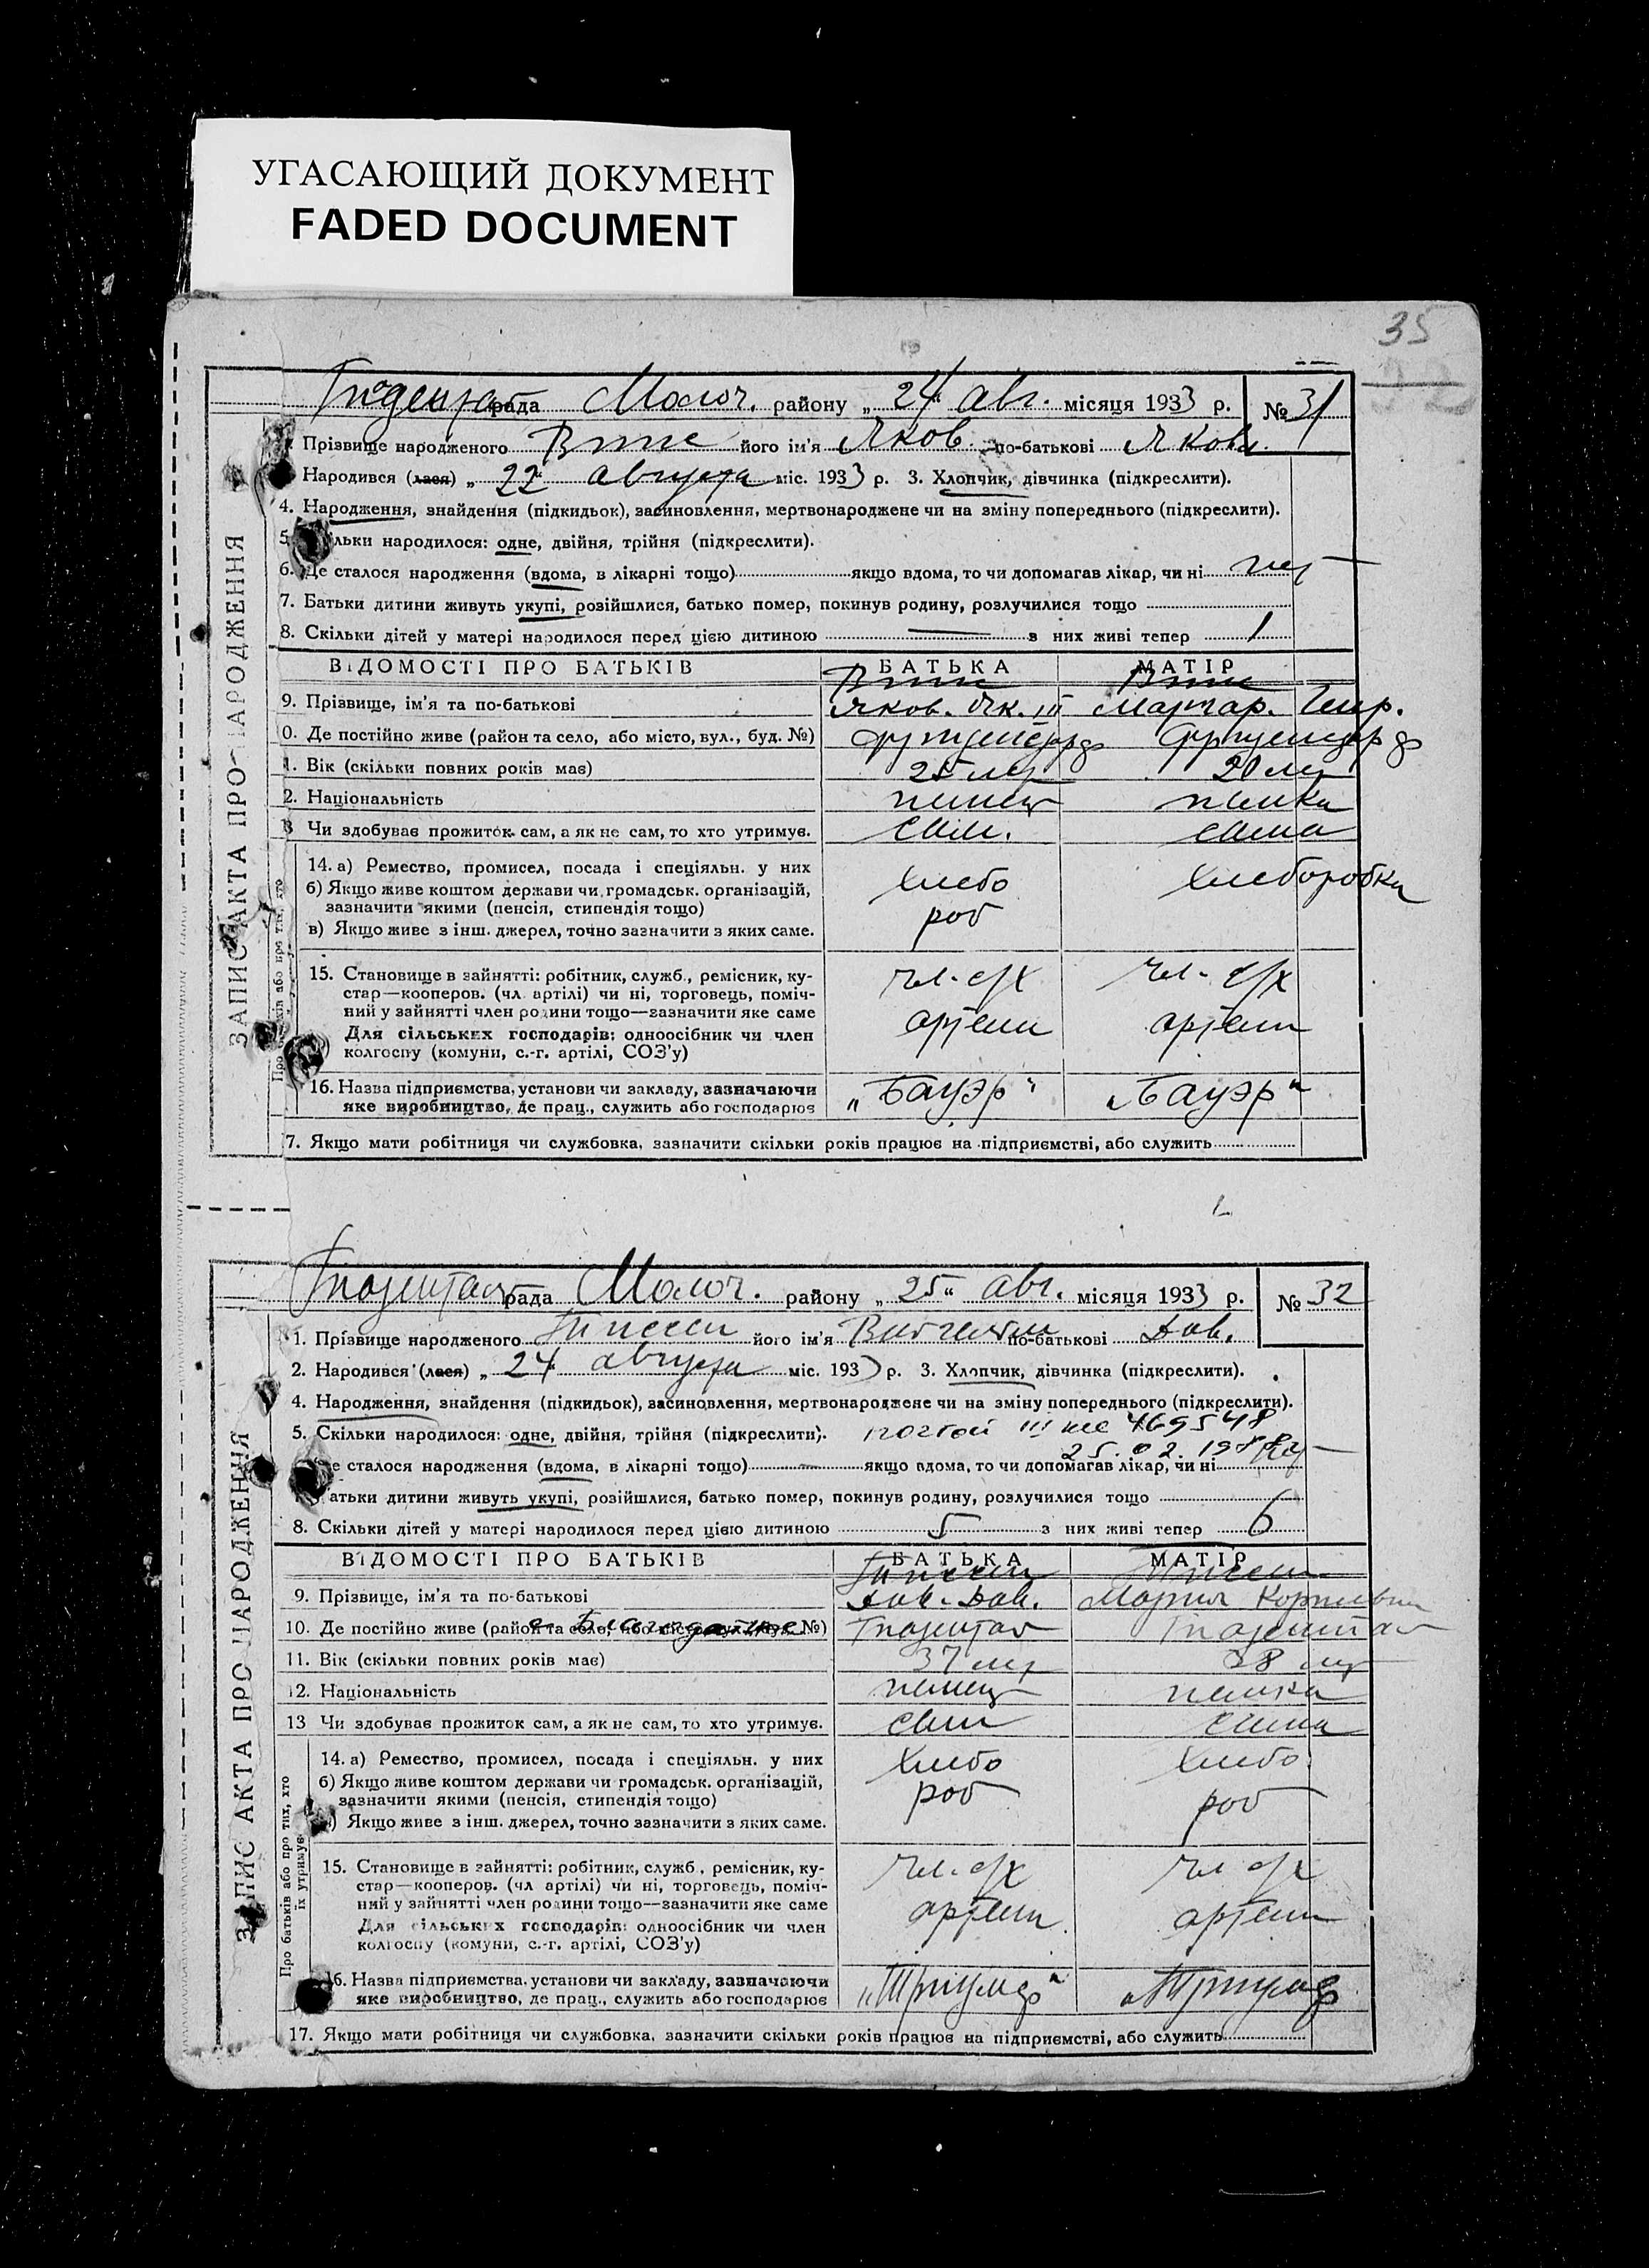 УГАСАЮЩИЙ ДОКУМЕНТ
FADED DOCUMENT
35
рада Молоч. району „24“ авг. місяця 1933 р. № 31
ЗАПИС АКТА ПРО НАРОДЖЕННЯ
Прізвище народженого його ім'я Яков по-батькові Яковл.
Народився (лася) „22“ августа міс. 1933 р. 3. Хлопчик, дівчинка (підкреслити).
4. Народження, знайдення (підкидьок), засиновлення, мертвонароджене чи на зміну попереднього (підкреслити).
5. льки народилося: одне, двійня, трійня (підкреслити).
6. Де сталося народження (вдома, в лікарні тощо) якщо вдома, то чи допомагав лікар, чи ні нет
7. Батьки дитини живуть укупі, розійшлися, батько помер, покинув родину, розлучилися тощо
8. Скільки дітей у матері народилося перед цією дитиною — з них живі тепер 1
ВІДОМОСТІ ПРО БАТЬКІВ БАТЬКА МАТІР
9. Прізвище, ім'я та по-батькові Яков. Як. III Маргар. Генр.
0. Де постійно живе (район та село, або місто, вул., буд. №)
1. Вік (скільки повних років має) 25 лет 20 лет
2. Національність немец немка
3 Чи здобуває прожиток сам, а як не сам, то хто утримує. сам. сама
14. а) Ремество, промисел, посада і спеціяльн. у них
б) Якщо живе коштом держави чи громадськ. організацій, хлебо хлеборобка
зазначити якими (пенсія, стипендія тощо) роб
в) Якщо живе з інш. джерел, точно зазначити з яких саме.
15. Становище в зайнятті: робітник, служб., ремісник, ку- чл. с/х чл. с/х
стар—кооперов. (чл. артілі) чи ні, торговець, поміч-
ний у зайнятті член родини тощо—зазначити яке саме артели артели
Для сільських господарів: одноосібник чи член
колгоспу (комуни, с.-г. артілі, СОЗ'у)
16. Назва підприємства, установи чи закладу, зазначаючи „Бауэр“ „Бауэр“
яке виробництво, де прац., служить або господарює
7. Якщо мати робітниця чи службовка, зазначити скільки років працює на підприємстві, або служить
рада Молоч. району „25“ авг. місяця 1933 р. № 32
ЗАПИС АКТА ПРО НАРОДЖЕННЯ
1. Прізвище народженого його ім'я по-батькові Дав.
2. Народився (лася) „24“ августа міс. 1933 р. 3. Хлопчик, дівчинка (підкреслити).
4. Народження, знайдення (підкидьок), засиновлення, мертвонароджене чи на зміну попереднього (підкреслити).
5. Скільки народилося: одне, двійня, трійня (підкреслити). III 469548
25.02.1988
е сталося народження (вдома, в лікарні тощо) — якщо вдома, то чи допомагав лікар, чи ні нет
атьки дитини живуть укупі, розійшлися, батько помер, покинув родину, розлучилися тощо
8. Скільки дітей у матері народилося перед цією дитиною 5 з них живі тепер 6
ВІДОМОСТІ ПРО БАТЬКІВ БАТЬКА МАТІР
9. Прізвище, ім'я та по-батькові Дав. Дав. Мария Корнеевна
10. Де постійно живе (район та село, або місто, вул., буд. №)
11. Вік (скільки повних років має) 37 лет 38 лет
12. Національність немец немка
13 Чи здобуває прожиток сам, а як не сам, то хто утримує. сам сама
Про батьків або про тих, хто їх утримує
14. а) Ремество, промисел, посада і спеціяльн. у них хлебо хлебо
б) Якщо живе коштом держави чи громадськ. організацій, роб роб
зазначити якими (пенсія, стипендія тощо)
) Якщо живе з інш. джерел, точно зазначити з яких саме.
15. Становище в зайнятті: робітник, служб., ремісник, ку- чл. с/х чл. с/х
стар—кооперов. (чл артілі) чи ні, торговець, поміч-
ний у зайнятті член родини тощо—зазначити яке саме артели артели
Для сільських господарів: одноосібник чи член
колгоспу (комуни, с.-г. артілі, СОЗ'у)
16. Назва підприємства, установи чи закладу, зазначаючи „Триумф“ „Триумф
яке виробництво, де прац., служить або господарює
17. Якщо мати робітниця чи службовка, зазначити скільки років працює на підприємстві, або служить